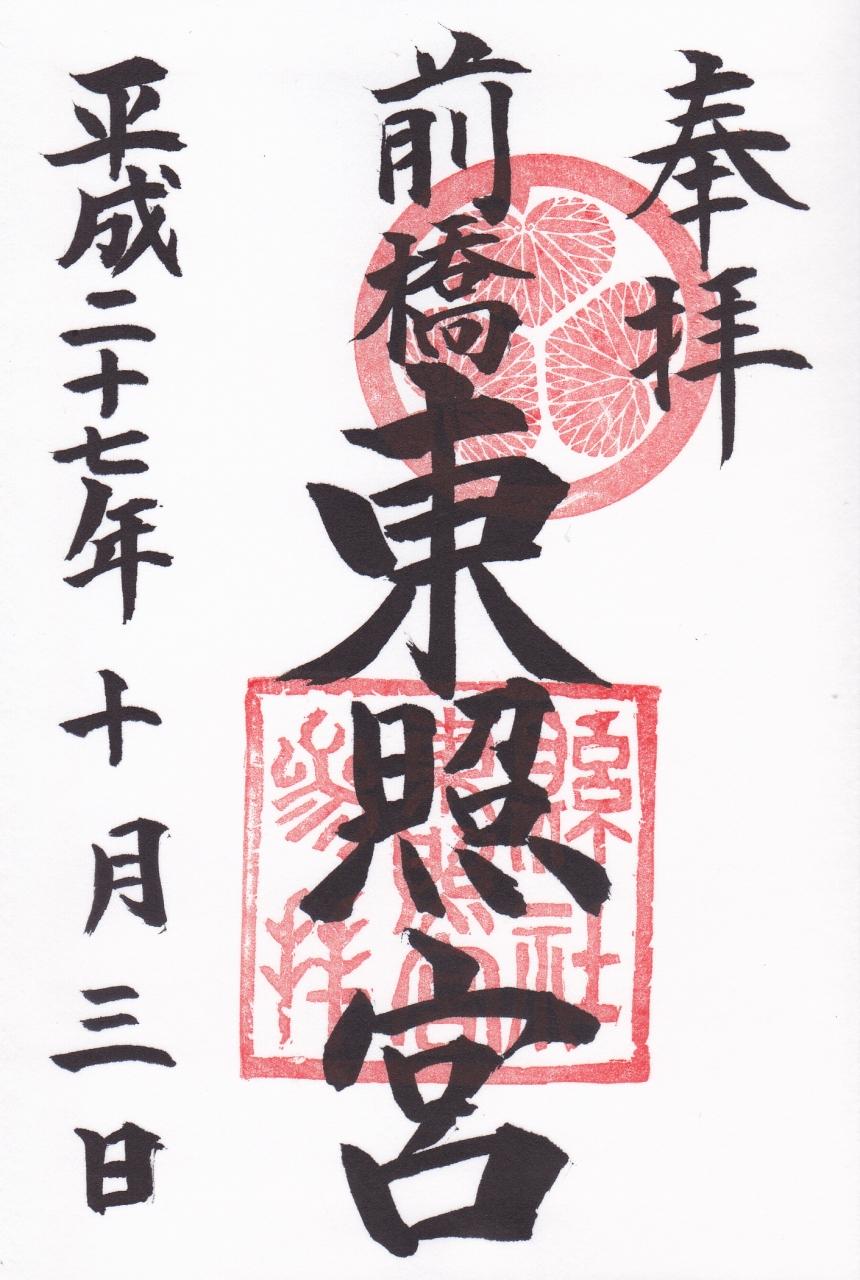 奉拝
前橋東照宮
縣社
東照宮
参拝
平成二十七年十月三日